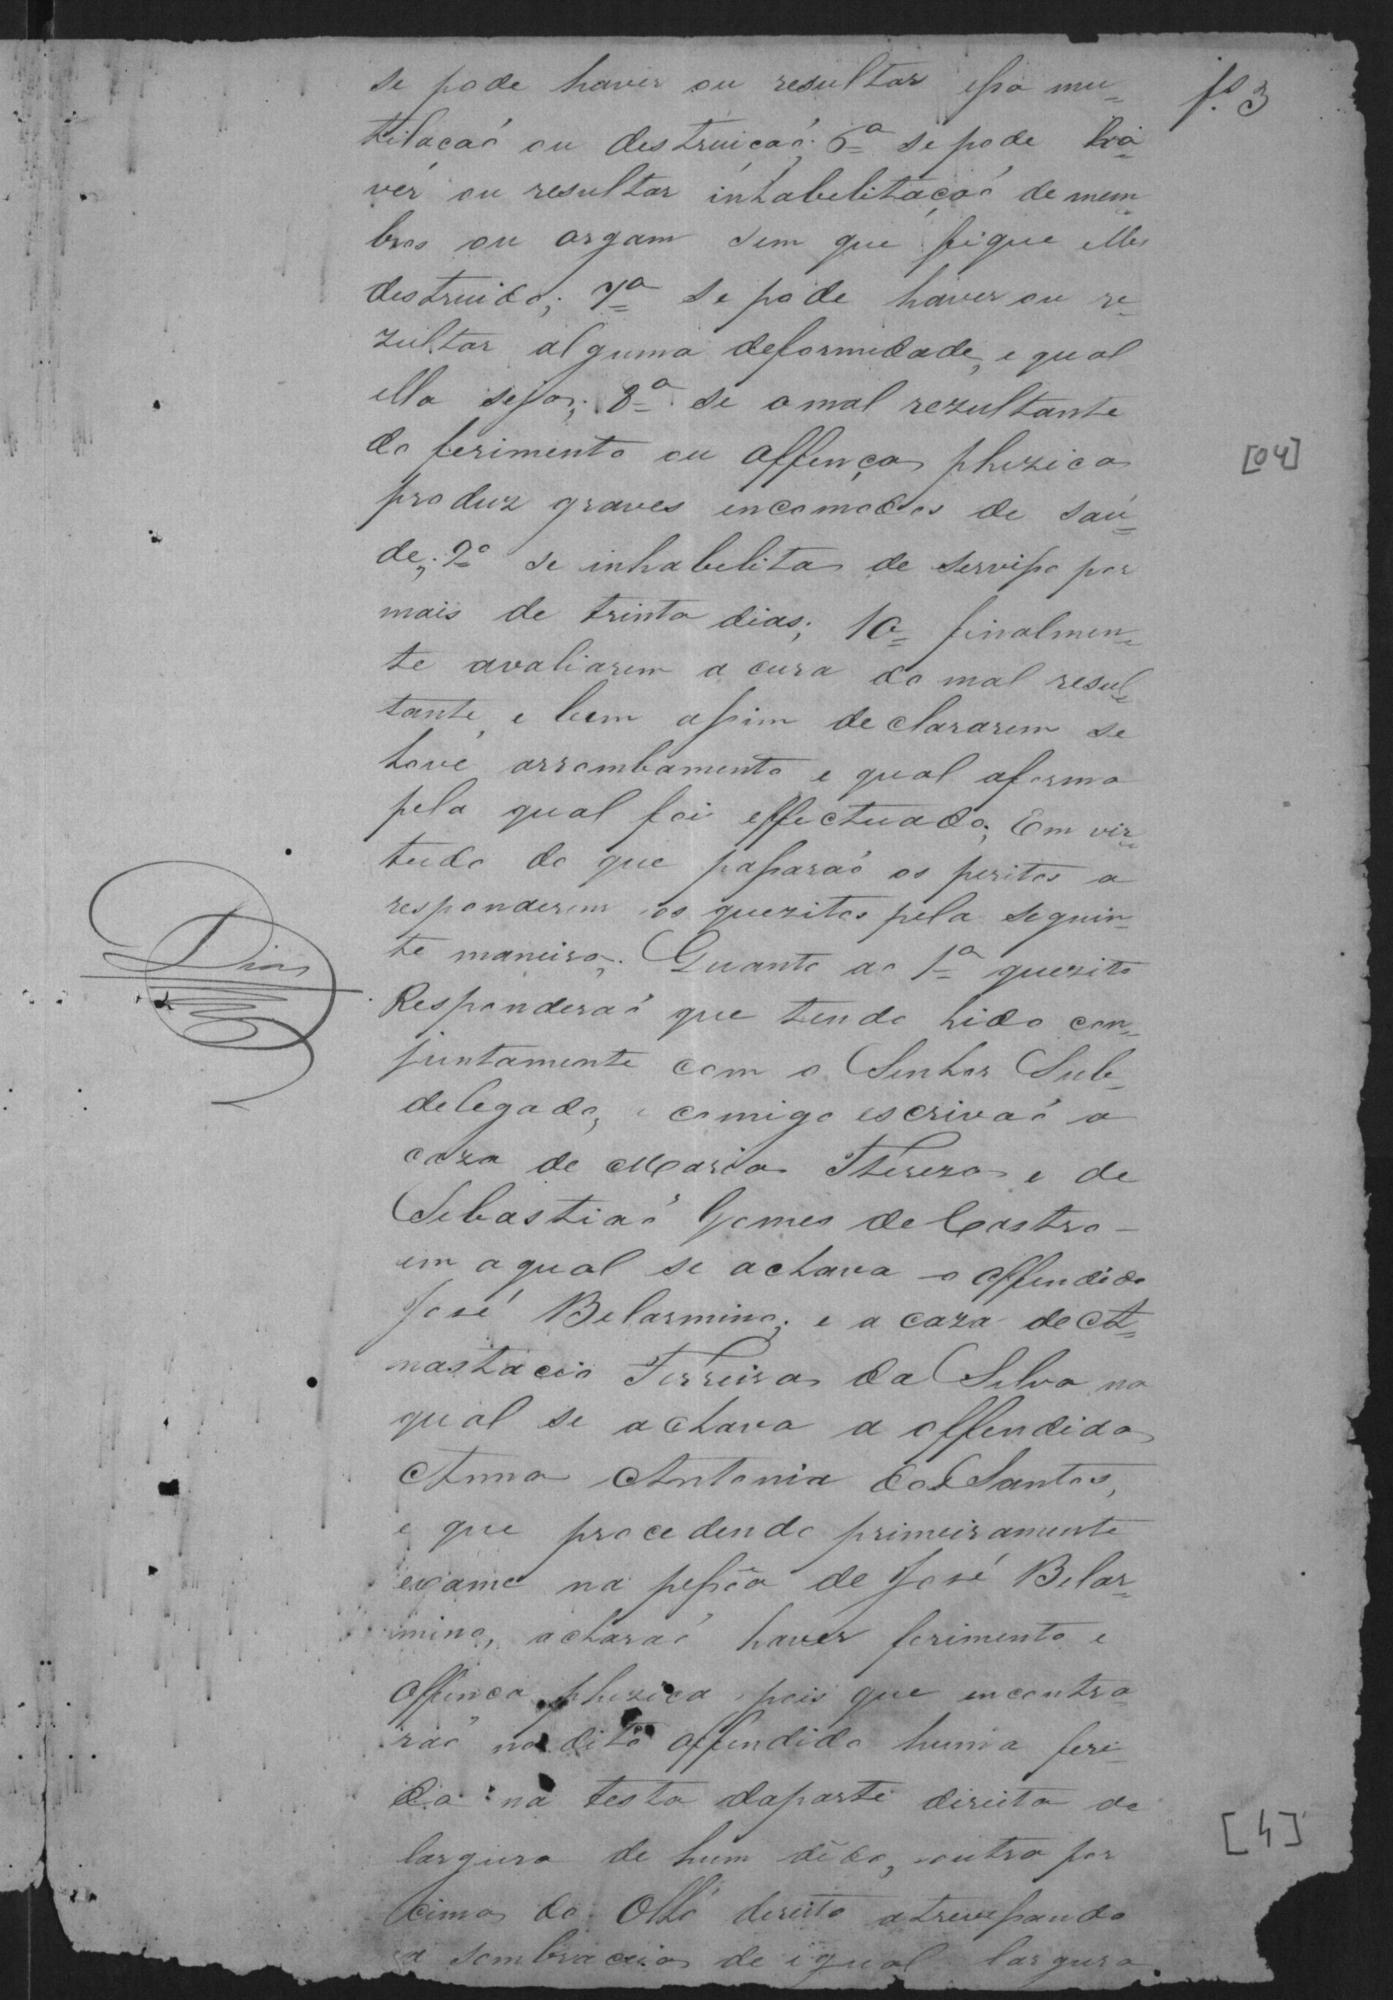 fs 3
se pode haver ou resultar essa mu=
tilacaõ ou destruicaõ; 6ª se pode ha=
ver ou resultar inhabilitaçaõ de mem
bros ou orgam sem que fique elle
destruido; 7ª se pode haver ou re=
zultar alguma deformidade, e qual
ella seja; 8ª se o mal rezultante
do ferimento ou offença phizica
produz graves encomodos de sau=
de; 9º se inhabelita de serviço por
mais de trinta dias; 10º finalmen=
te avaliarem a cura do mal resul=
tante, e bem assim declararem se
hove arrombamento e qual a forma
pela qual foi effectuado; Em vir=
tudo do que passaraõ os peritos a
responderem os quezitos pela seguin=
te maneira; Quanto ao 1º quezito
Responderaõ que tendo hido con=
juntamente com o Senhor Sub=
delegado, e comigo escrivaõ a
caza de Maria Thereza e de
Sebastiaõ Gomes de Castro
em a qual se achava o offendido
José Belarmino; e a caza de A=
nastacio Ferreira da Silva na
qual se achava a offendida
Anna Antonia dos Santos,
e que procedendo primeiramente
exame na pessõa de José Belar=
mino, acharaõ haver ferimento e
offenca phizica, pois que encontra=
raõ no dito offendido huma feri=
da na testa da parte direita de
largura de hum dêdo, outra por
cima do Olho direito atravessando
a sombracia de igual largura.
Dias
[04]
[4]